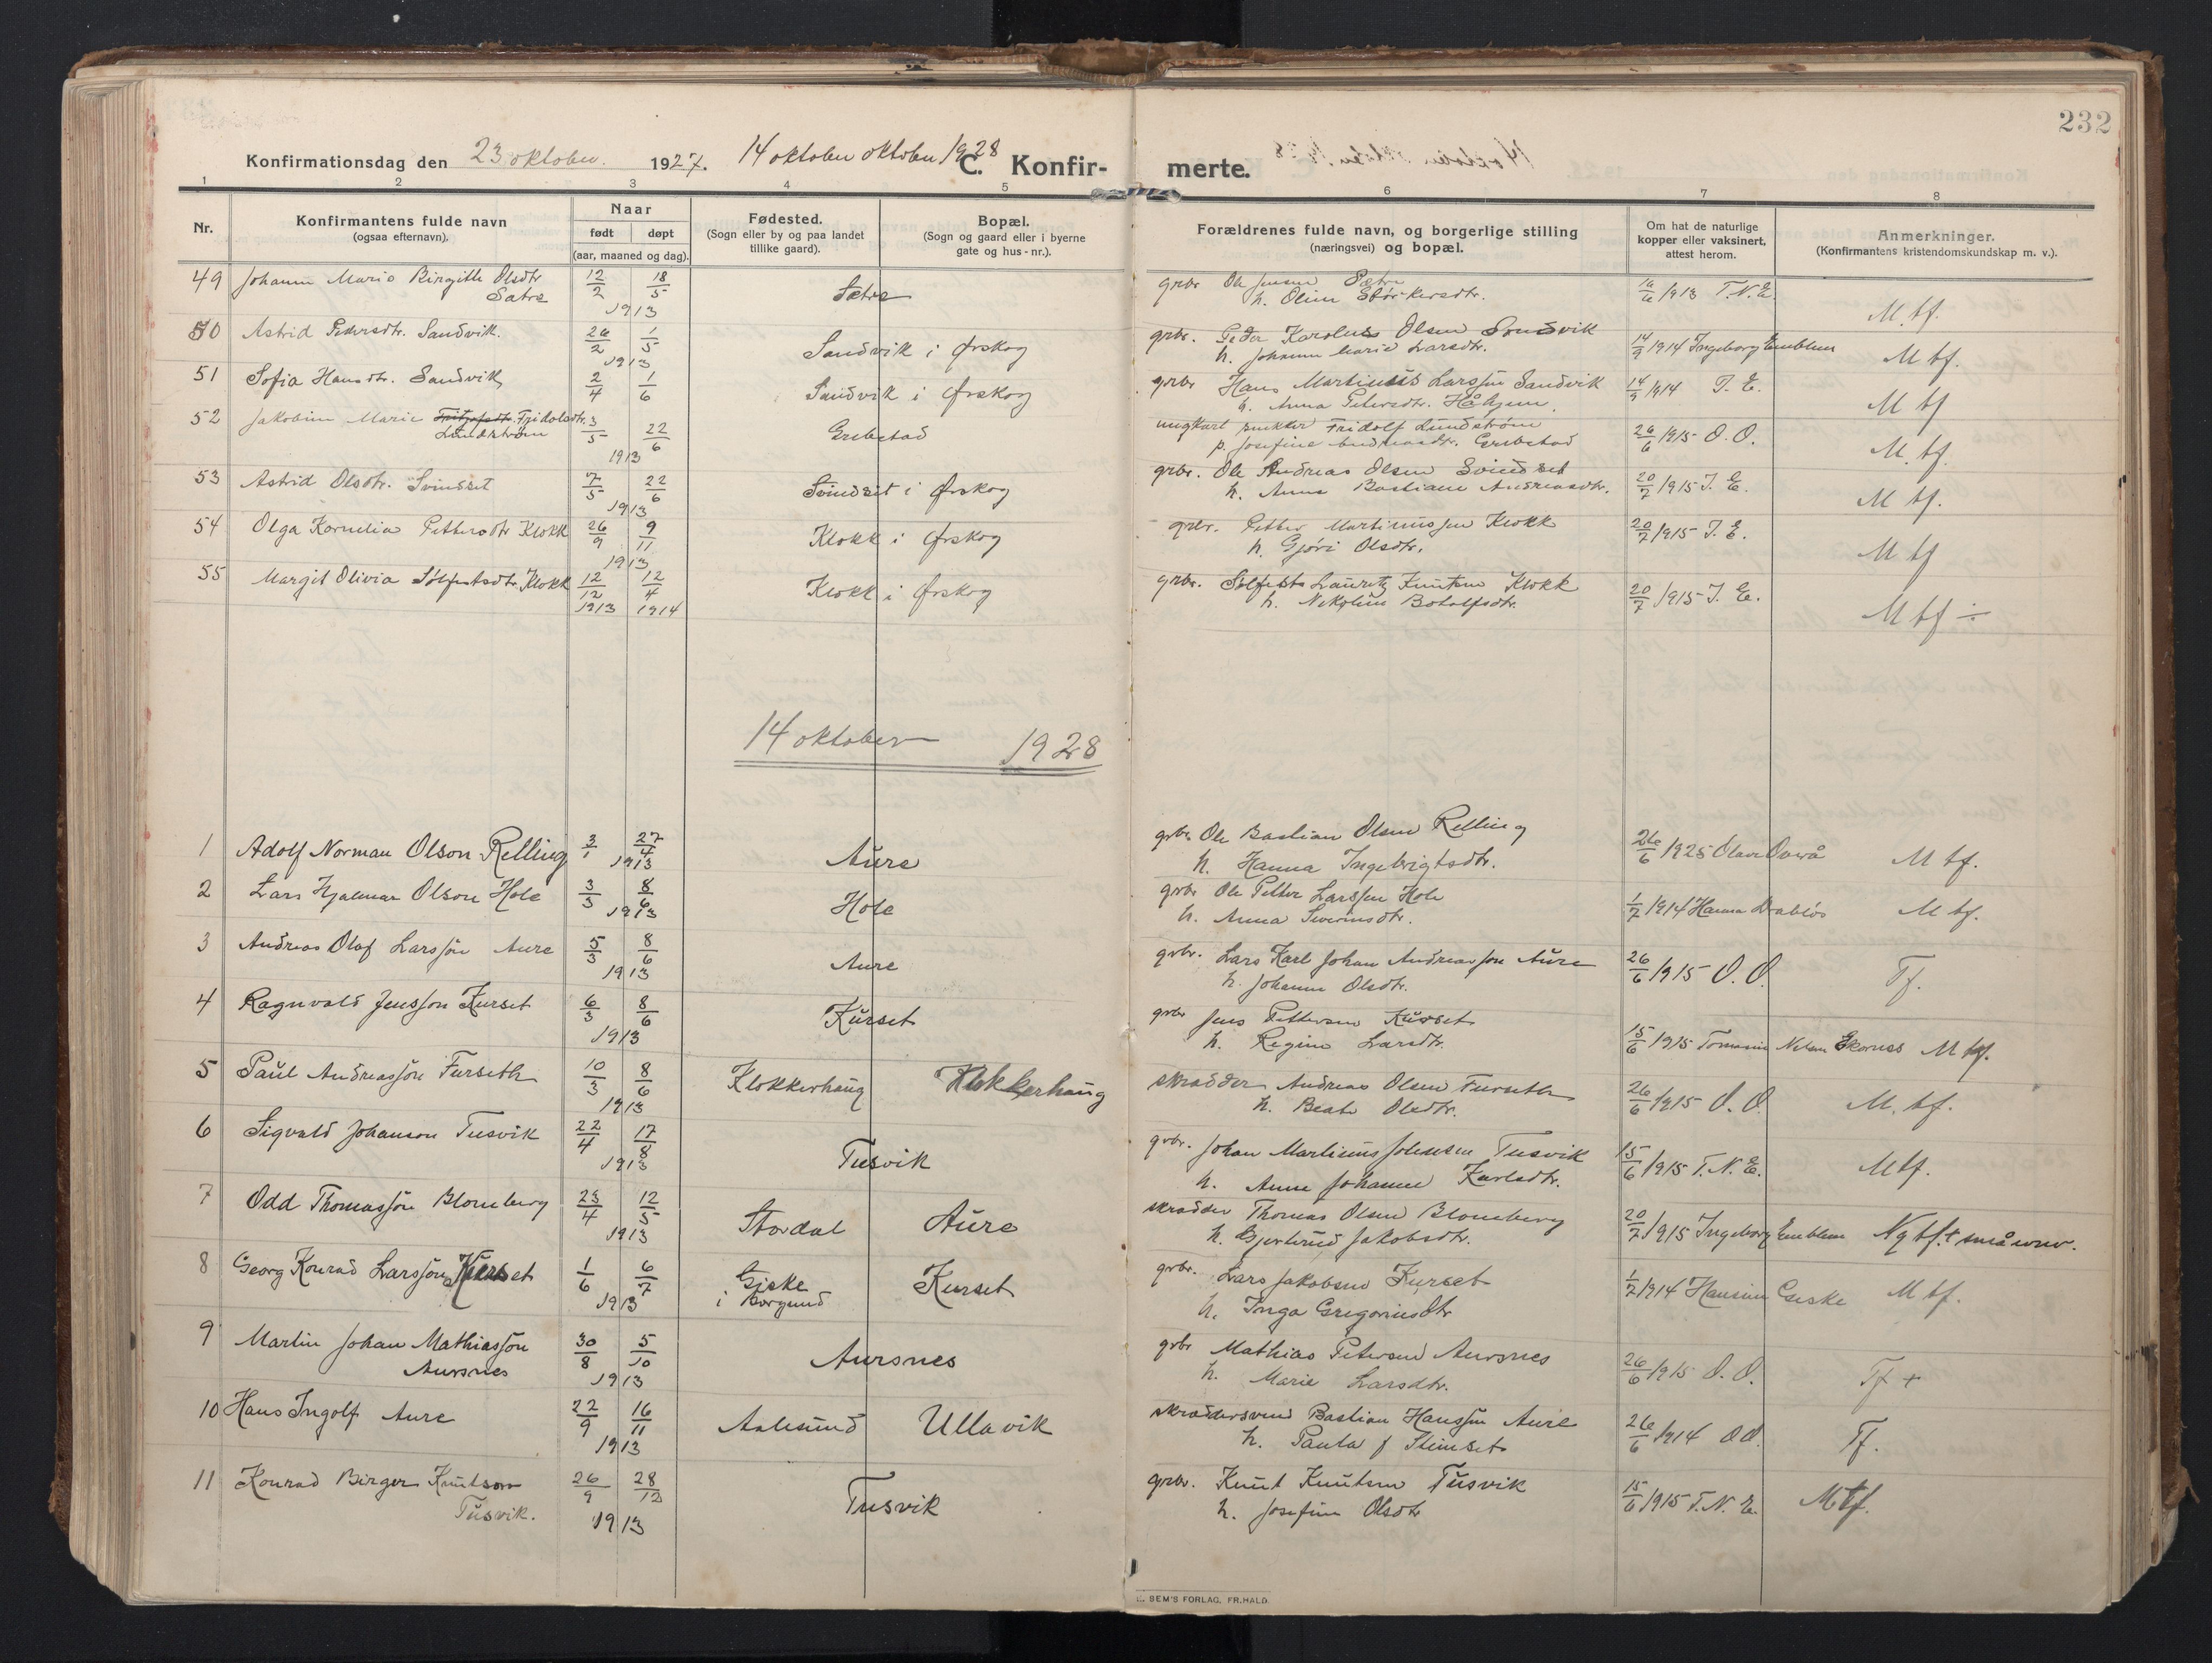 232
Konfirmationsdag den 23 oktober. 1927. 14 oktober oktober 1928 C. Konfir- merte.
1 2 3 4 5 6 7 8
Nr. Konfirmantens fulde navn (ogsaa efternavn). Naar født døpt (aar, maaned og dag). Fødested. (Sogn eller by og paa landet tillike gaard). Bopæl. (Sogn og gaard eller i byerne gate og hus-nr.). Forældrenes fulde navn, og borgerlige stilling (næringsvei) og bopæl. Om hat de naturlige kopper eller vaksinert, attest herom. Anmerkninger. (Konfirmantens kristendomskundskap m. v.).
49 Johanne Marie Birgitte Olsdtr 12/2 18/5 Sætre grbr Ole Jensen Sætre 16/6 1913 T. N. E.
Sætre 1913 h. Oline M. tf.
50 Astrid Pedersdtr. Sandvik. 26/2 1/5 Sandvik i Ørskog grbr. Peder Karolus Olsen Sandvik 14/9 1914 Ingeborg Emblem M tf.
1913 h. Johanne Marie Larsdtr.
51 Sofia Hansdtr. Sandvik 2/4 1/6 Sandvik i Ørskog grbr Hans Martinus Larssen Sandvik 14/9 1914 I. E. M tf
h. Anna Petersdtr.
52 Jakobine Marie Fridolsdtr. 3/5 22/6 Grebstad ungkart Fridolf Lundstrøm 26/6 1915 O. O. M. tf.
Lundstrøm 1913 p. Josefine Grebstad
53 Astrid Olsdtr. Svindset 7/5 22/6 Svindset i Ørskog grbr. Ole Andreas Olsen Svindset 20/7 1915 I. E. M tf.
1913 h. Anna Bastiane Andreasdtr.
54 Olga Kornelia Pettersdtr Klokk 26/9 9/11 Klokk i Ørskog grbr. Petter Martinussen Klokk 20/7 1915 I. E. M tf
1913 h. Gjøri Olsdtr.
55 Margit Olivia Sølfestsdtr. Klokk 12/12 12/4 Klokk i Ørskog grbr. Sølfest Lauritz Knutsen Klokk 20/7 1915 I. E. M tf ÷
1913 1914 h. Nikoline Botolfsdtr.
14 oktober 1928
1 Adolf Norman Olson Relling 3/1 27/4 Aure grbr Ole Bastian Olsen Relling 26/6 1925 Olave Overå M tf.
1913 h. Hanna Ingebrigtsdtr.
2 Lars Hjalmar Olson Hole 3/3 8/6 Hole grbr Ole Petter Larssen Hole 1/7 1914 Hanna Drabløs M tf.
1913 h. Anna Severinsdtr.
3 Andreas Olaf Larsson Aure 5/3 8/6 Aure grbr. Lars Karl Johan Andreassen Aure 26/6 1915 O. O. Tf.
1913 h. Johanne Olsdtr.
4 Ragnvald Jensson Kurset 6/3 8/6 Kurset grbr Jens Pettersen Kurset 15/6 1915 Tomasine Nilsen Ekornes M tf.
1913 h. Regine Larsdtr.
5 Paul Andreasson Furseth 10/3 8/6 Klokkerhaug Klokkerhaug skrædder Andreas Olsen Furseth 26/6 1915 O. O. M. tf.
1913 h. Beate Olsdtr.
6 Sigvald Johanson Tusvik 22/4 17/8 Tusvik grbr. Johan Martinus Johnsen Tusvik 15/6 1915 T. N. E. M tf.
1913 h. Anne Johanne Karlsdtr.
7 Odd Thomasson Blomberg 23/4 12/5 Stordal Aure skrædder Thomas Olsen Blomberg 20/7 1915 Ingeborg Emblem Ng tf. + små
1913 h. Gjertrud Jakobsdtr.
8 Georg Konrad Larsson Kurset 1/6 6/7 Giske Kurset grbr. Lars Jakobsen Kurset 1/7 1914 Hansine Giske M tf.
1913 i Borgund h. Inga Gregoriusdtr
9 Martin Johan Mathiasson 30/8 5/10 Aursnes grbr Mathias Petersen Aursnes 26/6 1915 O. O. Tf +
Aursnes 1913 h. Marie Larsdtr.
10 Hans Ingolf Aure 22/9 16/11 Aalesund Ullavik skræddersvend Bastian Hanssen Aure 26/6 1914 O O. Tf.
1913 h. Paula f Slimset
11 Konrad Birger Knutson 26/9 28/12 Tusvik grbr. Knut Knutsen Tusvik 15/6 1915 T. N. E. M tf.
Tusvik. 1913 h. Josefine Olsdtr
SEM'S FORLAG. FR.HALD.